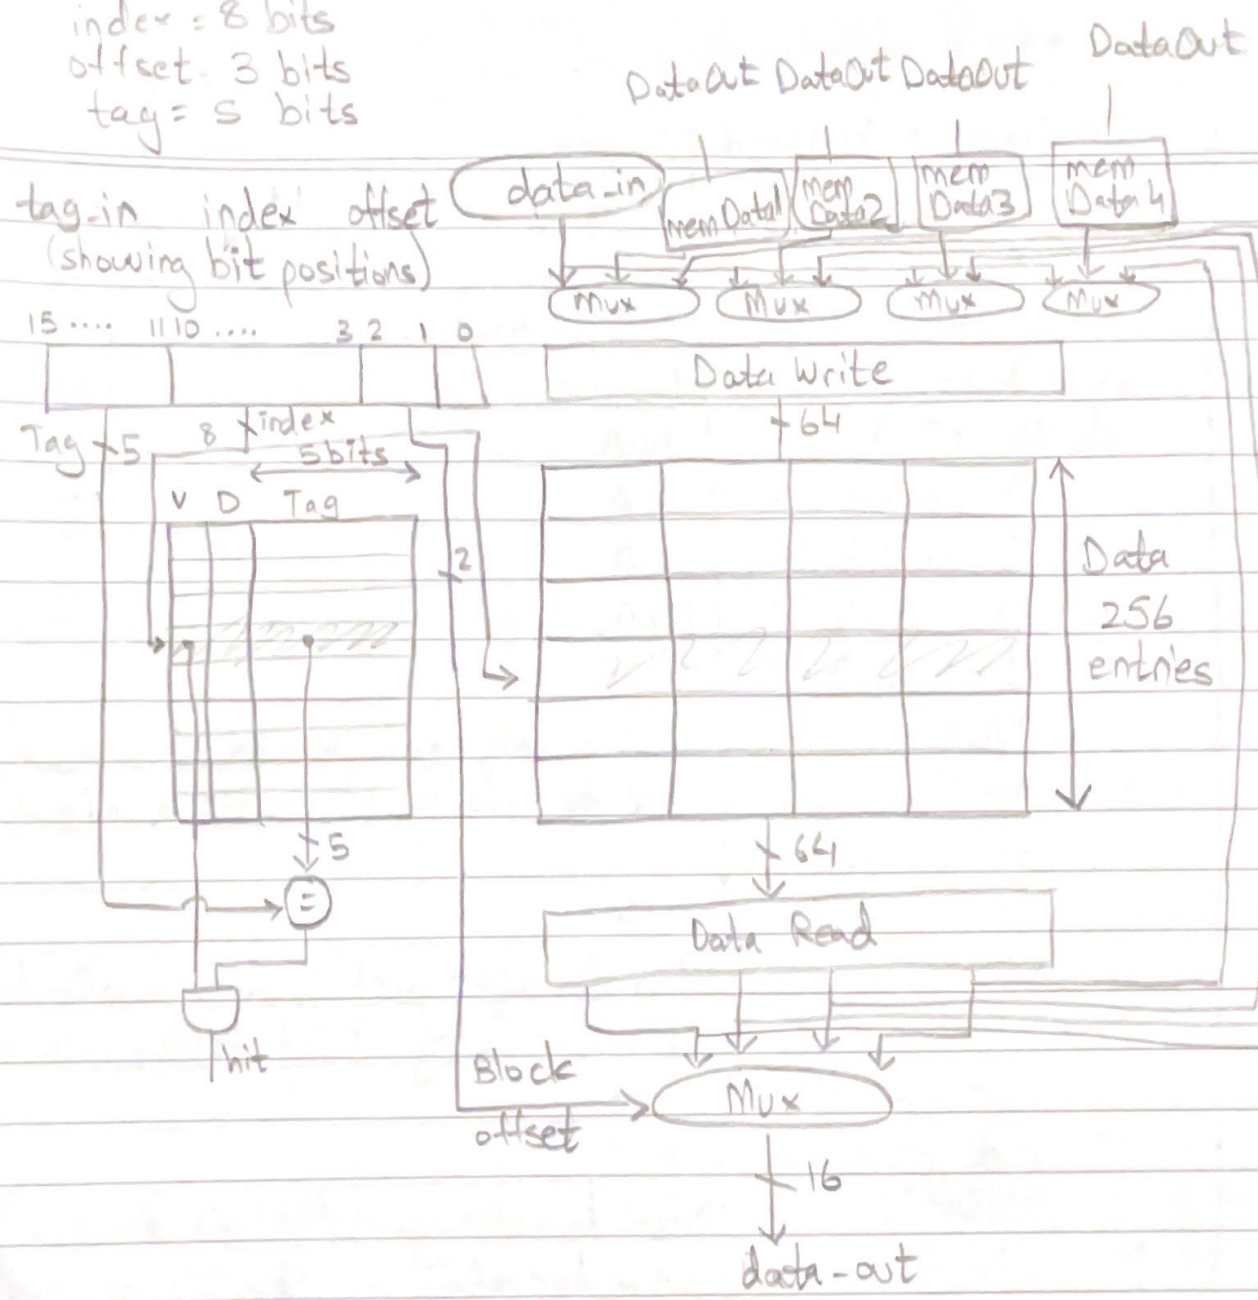 index = 8 bits
offset - 3 bits
tag = 5 bits
DataOut DataOut DataOut DataOut
tag-in index offset
(showing bit positions)
data-in
memData1
mem Data2
mem Data3
mem Data4
Mux Mux Mux Mux
15 .... 11 10 .... 3 2 1 0
Data Write
64
Tag 5
8 index
5 bits
V D Tag
2
Data
256
entries
5
64
=
Data Read
hit
Block
offset
Mux
16
data-out